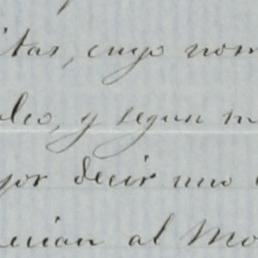 itas, cuyo nom
leo, y segun m
jor decir uno
ecian al Mo